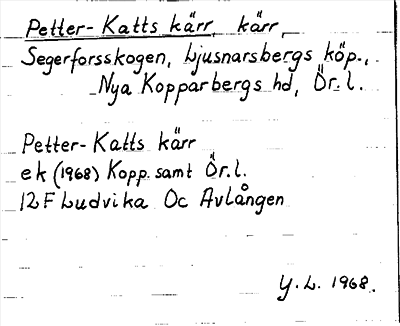 Petter-Katts kärr, kärr,
Segerforsskogen, Ljusnarsbergs köp.,
Nya Kopparbergs hd, Ör. l.
Petter-Katts kärr
ek (1968) Kopp. samt Ör. l.
12F Ludvika Oc Avlången
Y. L. 1968.